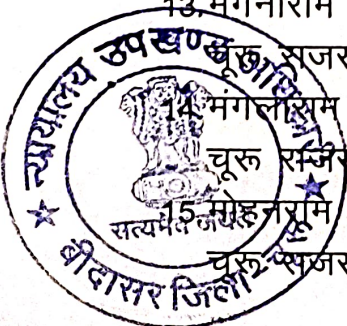 13. मगनाराम
चूरू राजस
14. मंगलाराम
चूरू राजस
15. मोहनराम
चूरू राजस
न्यायालय उपखण्ड अधिकारी
सत्यमेव जयते
बीदासर जिला-चूरू